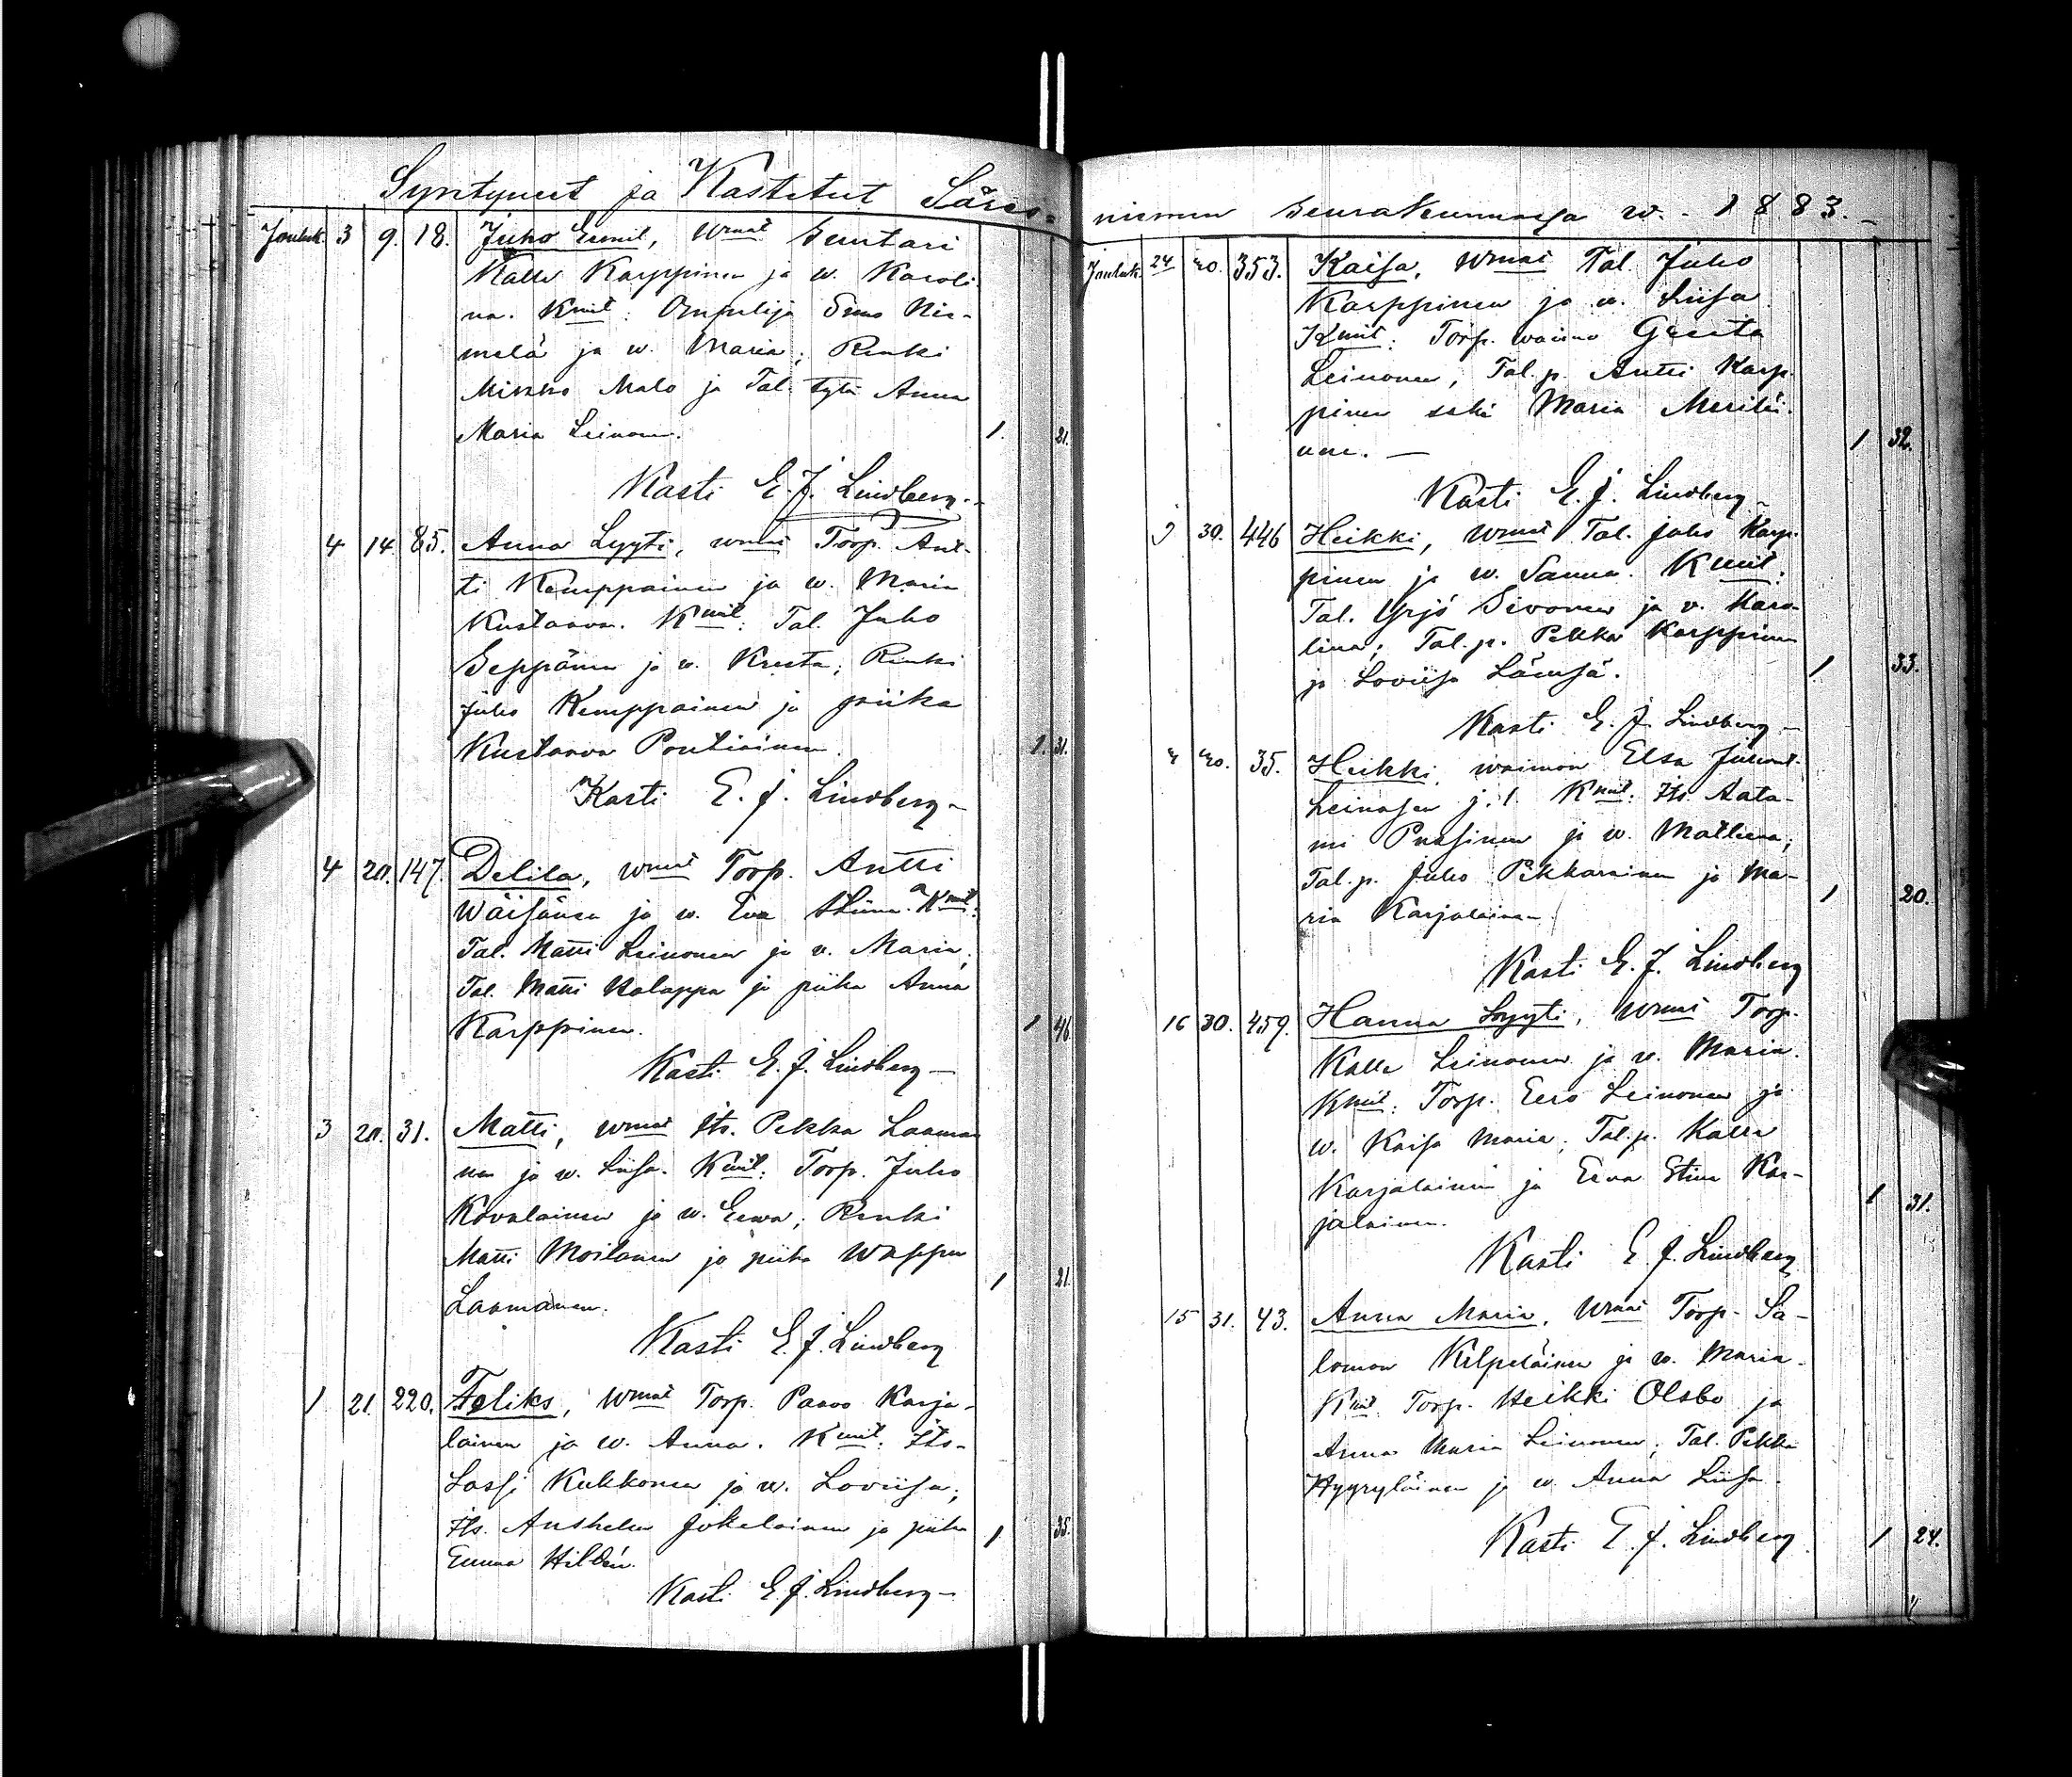 Syntyneet ja Kastetut Säräs-
Jouluk. 3 9. 18. Juho Eemil, wmat Suutari
Kalle Karppinen ja w. Karoli
na. Kmit: Ompelija Simo Nie-
melä ja w. Maria; Renki
Mikko Malo ja Tal. tytär Anna
Maria Leinonen. 1. 21.
Kasti E. J. Lindberg.
4 14 85. Anna Lyyti, wmat Torp. Ant-
ti Kemppainen ja w. Maria
Kustaava. Kmit: Tal. Juho
Seppänen ja w. Kreeta; Renki
Juho Kemppainen ja piika
Kustaava Pontiainen. 1. 31.
Kasti E. J. Lindberg
4 20. 147. Delila, wmat Torp. Antti
Wäisänen ja w. Eva Stiina. Kmit:
Tal. Matti Leinonen ja w. Maria;
Tal. Matti Kaluppa ja piika Anna
Karppinen. 1 46.
Kasti E. J. Lindberg
3 20. 31. Matti, wmat Its. Pekka Laama
nen ja w. Liisa. Kmit: Torp. Juho
Kovalainen ja w. Eewa; Renki
Matti Moilanen ja piika Wappu
Laamanen. 1 21.
Kasti E. J. Lindberg
1 21. 220. Feliks, wmat Torp. Paavo Karja-
lainen ja w. Anna. Kmit: Its.
Lassi Kukkonen ja w. Loviisa;
Its. Anshelm Jokelainen ja piika
Emma Hildén. 1 35.
Kasti E. J. Lindberg
niemen seurakunnassa w. 1883.
Jouluk. 24 30. 353. Kaisa, wmat Tal. Juho
Karppinen ja w. Liisa
Kmit: Torp. waimo Greeta
Leinonen, Tal. p. Antti Karp-
pinen sekä Maria Meriläi-
nen. 1 32.
Kasti E. J. Lindberg
9 30. 446 Heikki, wmat Tal. Juho Karp-
pinen ja w. Sanna. Kmit:
Tal. Yrjö Sivonen ja v. Karo-
lina; Tal. p. Pekka Karppinen
ja Loviisa Lämsä. 1 33.
Kasti E. J. Lindberg
30. 35. Heikki, waimon Elsa
Leinosen j. l. Kmit: Its. Aata-
mi Puasinen ja w. Matleena;
Tal. p. Juho Pikkarainen ja Ma-
ria Karjalainen. 1 20.
Kasti E. J. Lindberg
16 30. 459. Hanna Lyyti, wmat Torp.
Kalle Leinonen ja w. Maria.
Kmit: Torp. Eero Leinonen ja
w. Kaisa Maria; Tal. p. Kalle
Karjalainen ja Eeva Stina Kar-
jalainen. 1 31.
Kasti E. J. Lindberg
15 31. 43. Anna Maria, wmat Torp. Sa-
lomon Kilpeläinen ja w. Maria.
Kmit: Torp. Heikki Olsbo ja
Anna Maria Leinonen; Tal. Pekka
Hyyryläinen ja w. Anna Liisa.
Kasti E. J. Lindberg 1 24.